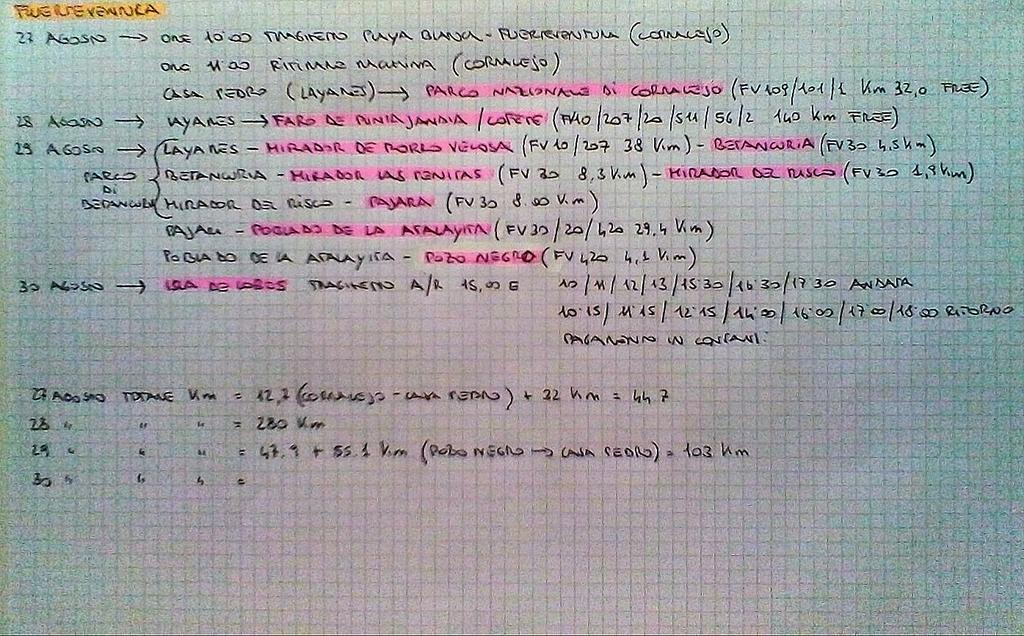 FUERTEVENTURA
27 AGOSTO → ORE 10:00 TRAGHETTO PLAYA BLANCA - FUERTEVENTURA (CORRALEJO)
ORE 11:00 RITIRARE MACCHINA (CORRALEJO)
CASA PEDRO (LAYARES) → PARCO NAZIONALE DI CORRALEJO (FV109/101/1 Km 32,0 FREE)
28 AGOSTO → LAYARES → FARO DE PUNTA JANDIA / COFETE (FV10/207/20/511/56/2 140 Km FREE)
29 AGOSTO → LAYARES - MIRADOR DE MORRO VELOSA (FV10/207 38 Km) - BETANCURIA (FV30 4,5 Km)
PARCO DI BETANCURIA
BETANCURIA - MIRADOR LAS PENITAS (FV 30 8,3 Km) - MIRADOR DEL RISCO (FV 30 1,8 Km)
MIRADOR DEL RISCO - PAJARA (FV 30 8.00 Km)
PAJARA - POBLADO DE LA ATALAYITA (FV 30/20/420 29,4 Km)
POBLADO DE LA ATALAYITA - POZO NEGRO (FV 420 4,1 Km)
30 AGOSTO → ISLA DE LOBOS TRAGHETTO A/R 15,00 € 10/11/12/13/15:30/16:30/17:30 ANDATA
10:15/11:15/12:15/14:00/16:00/17:00/18:00 RITORNO
PAGAMENTO IN CONTANTI.
27 AGOSTO TOTALE Km = 12,7 (CORRALEJO - CASA PEDRO) + 32 Km = 44,7
28 " " " = 280 Km
29 " " " = 47.9 + 55.1 Km (POZO NEGRO → CASA PEDRO) = 103 Km
30 " " " =